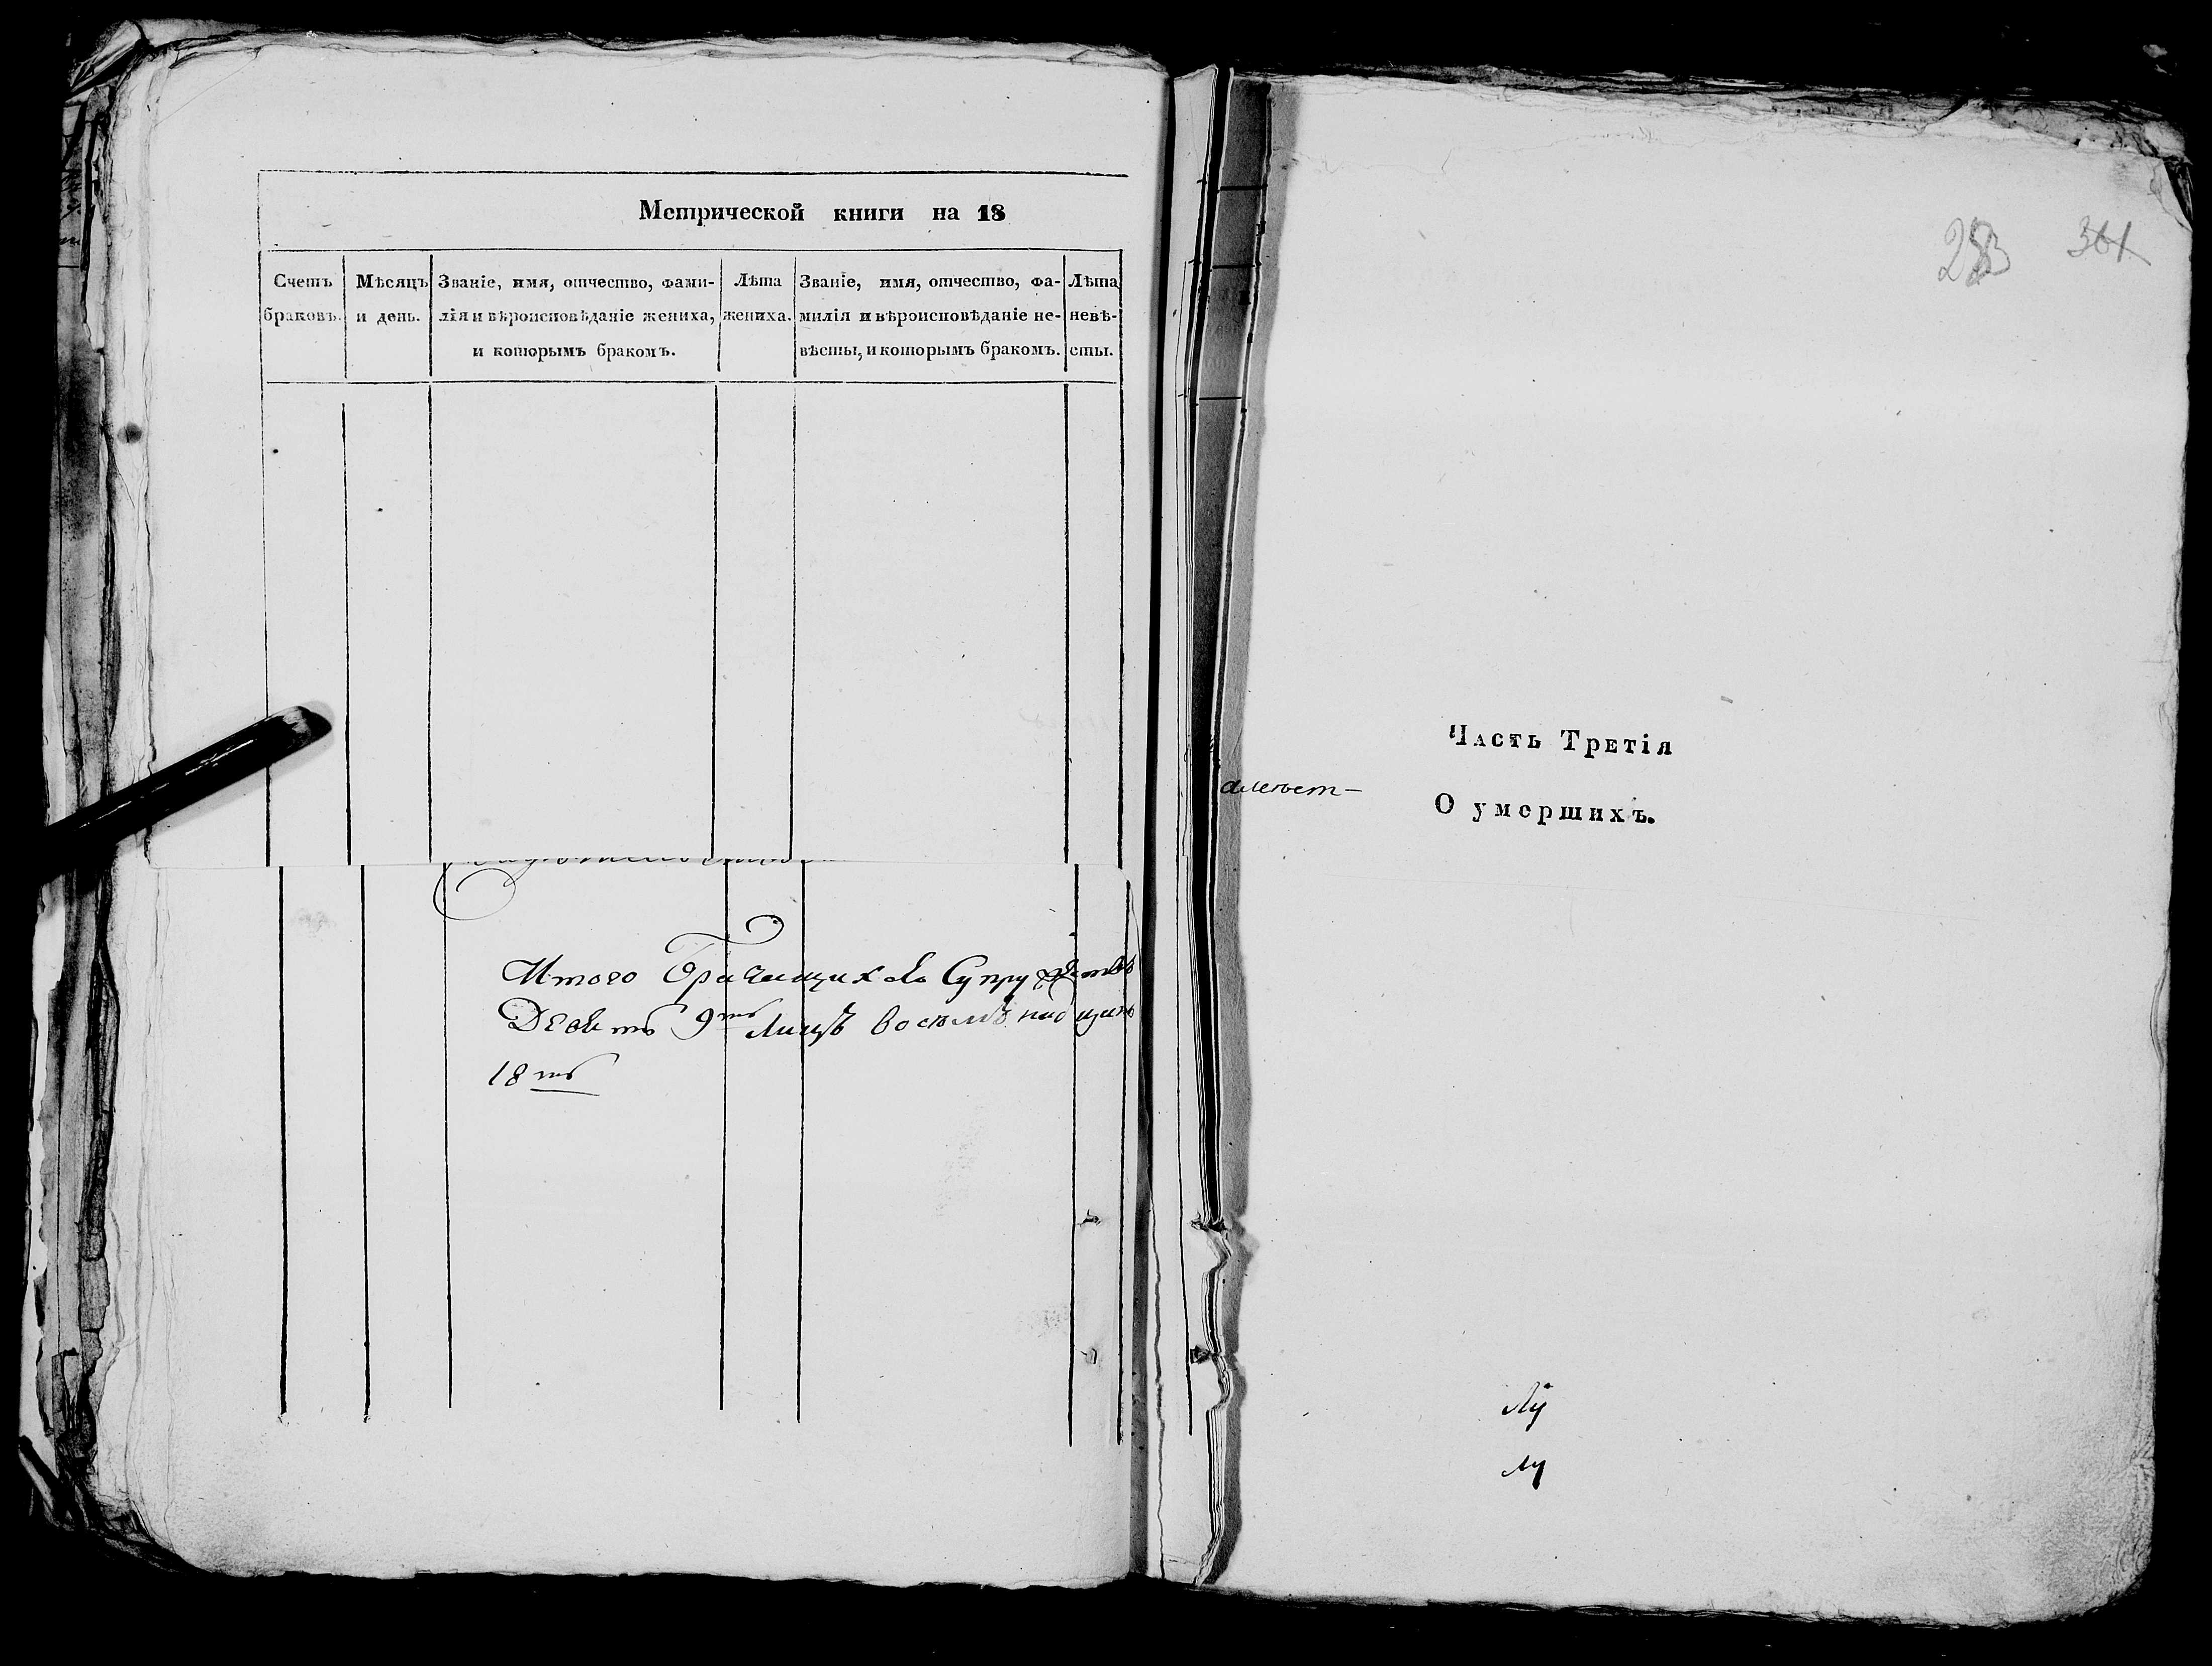 Метрической книги на 18
Счетъ браковъ.
Мѣсяцъ и день.
Званіе, имя, отчество, фами-
лія и вѣроисповѣданіе жениха,
и которымъ бракомъ.
Лѣта
жениха.
Званіе, имя, отчество, фа-
милія и вѣроисповѣданіе не-
вѣсты, и которымъ бракомъ.
Лѣта
невѣ-
сты.
Итого
Девять 9ть Лицъ восѣмьнадцать
18ть
361
Часть Третія
О умершихъ.